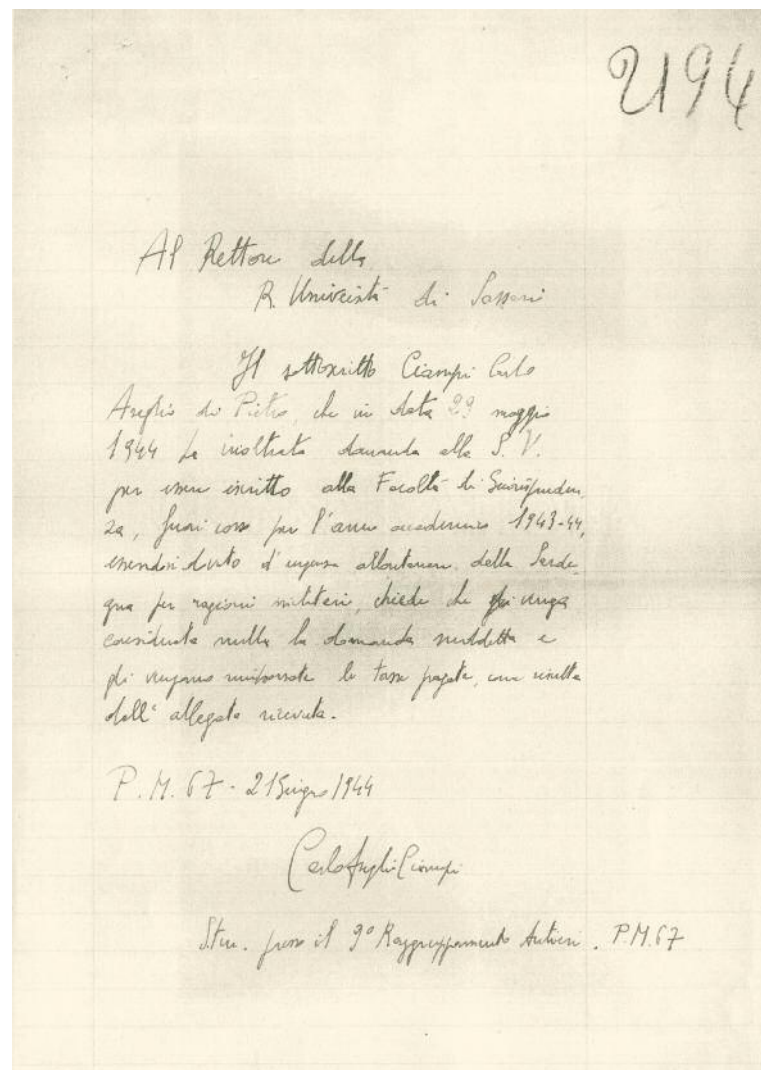 2194
Al Rettore della
R. Università di Sassari
Il sottoscritto Ciampi Carlo
Azeglio di Pietro, che in data 29 maggio
1944 ha inoltrata domanda alla S. V.
per essere iscritto alla Facoltà di Giurispruden-
za, fuori corso per l'anno accademico 1943-44,
essendosi dovuto d'urgenza allontanare dalla Sarde-
gna per ragioni militari, chiede che gli venga
considerata nulla la domanda suddetta e
gli vengano rimborsate le tasse pagate, come risulta
dall'allegata ricevuta.
P.M. 67 - 21 Giugno 1944
Carlo Azeglio Ciampi
S.ten. presso il 9° Raggruppamento Autieri. P.M. 67